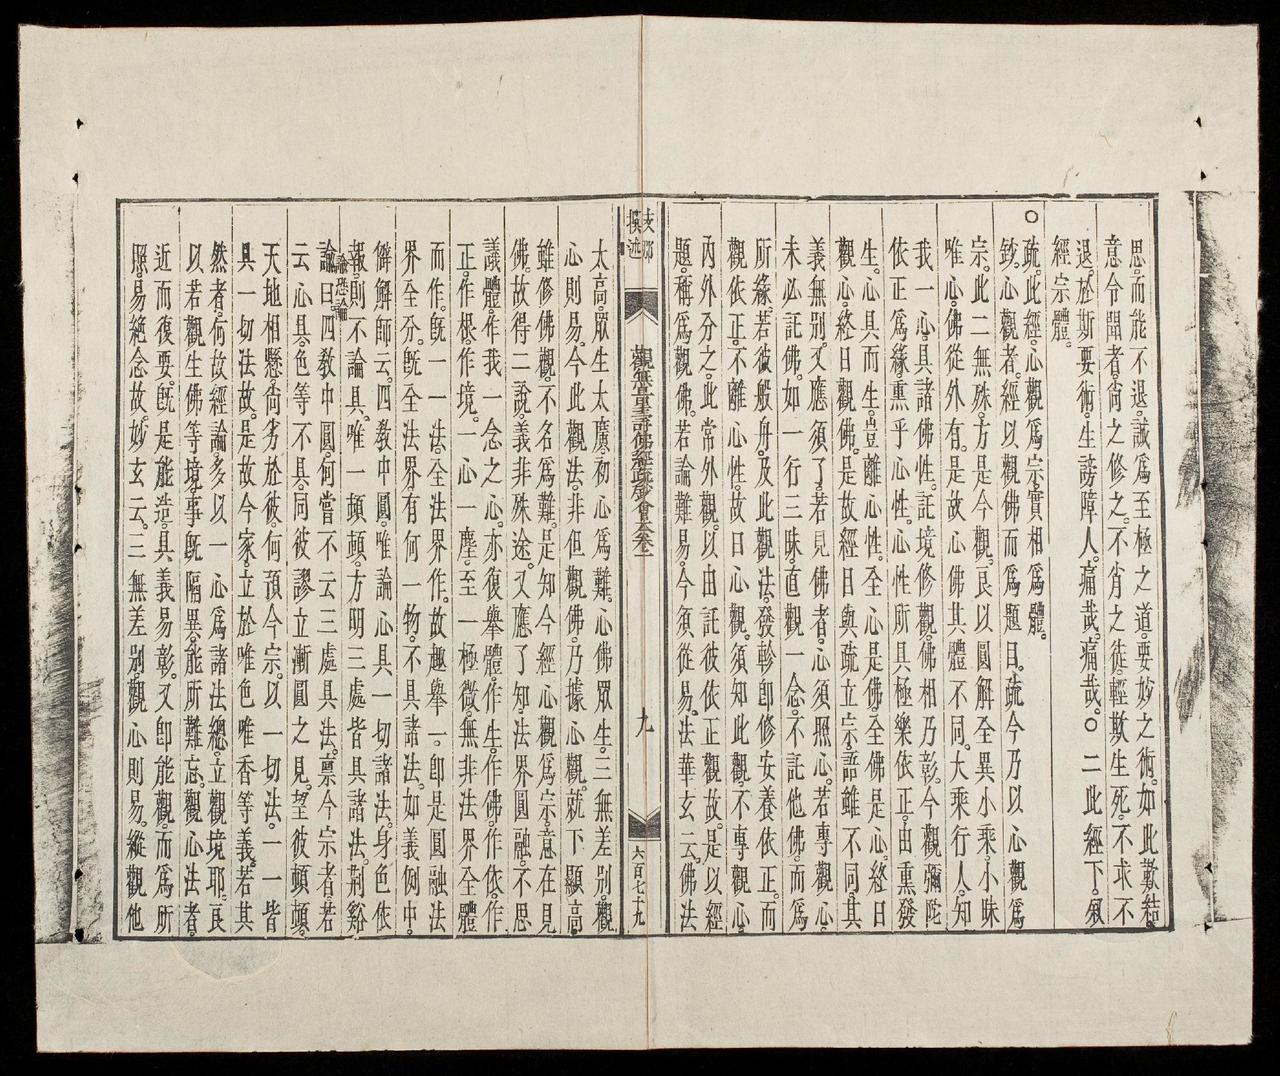 思。而能不退。誠爲至極之道。要妙之術。如此歎結。
意令聞者。尚之修之。不肖之徒。輕欺生死。不求不
退。於斯要術。生謗障人。痛哉。痛哉。〇二此經下。叙
經宗體。
〇疏。此經。心觀爲宗。實相爲體。
鈔。心觀者。經以觀佛而爲題目。疏今乃以心觀爲
宗。此二無殊。方是今觀。良以圓解全異小乘。小昧
唯心。佛從外有。是故心佛其體不同。大乘行人。知
我一心。具諸佛性。託境修觀。佛相乃彰。今觀彌陀
依正爲緣。熏乎心性。心性所具極樂依正。由熏發
生。心具而生。豈離心性。全心是佛。全佛是心。終日
觀心。終日觀佛。是故經目與疏立宗。語雖不同。其
義無別。又應須了。若見佛者。心須照心。若專觀心。
未必託佛。如一行三昧。直觀一念。不託他佛。而爲
所緣。若彼般舟。及此觀法。發軫即修安養依正。而
觀依正。不離心性。故曰心觀。須知此觀。不專觀心。
內外分之。此當外觀。以由託彼依正觀故。是以經
題。稱爲觀佛。若論難易。今須從易。法華玄云。佛法
支那撰述
觀無量壽佛經疏鈔會本卷一
九
六百七十九
太高。眾生太廣。初心爲難。心佛眾生。三無差別。觀
心則易。今此觀法。非但觀佛。乃據心觀。就下顯高。
雖修佛觀。不名爲難。是知今經心觀爲宗。意在見
佛。故得二說。義非殊途。又應了知。法界圓融。不思
議體。作我一念之心。亦復舉體。作生。作佛。作依。作
正。作根。作境。一心一塵。至一極微。無非法界全體
而作。既一一法。全法界作。故趣舉一。即是圓融法
界全分。既全法界。有何一物。不具諸法。如義例中。
解解師云。四教中圓。唯論心具一切諸法。身色依
報。則不論具。唯一頓頓。方明三處皆具諸法。荊谿
論曰。四教中圓。何嘗不云三處具法。禀今宗者。若
云心具。色等不具。同彼謬立漸圓之見。望彼頓頓。
天地相懸。尚劣於彼。何預今宗。以一切法。一一皆
具一切法故。是故今家。立於唯色唯香等義。若其
然者。何故經論。多以一心爲諸法總。立觀境耶。良
以若觀生佛等境。事既隔異。能所難忘。觀心法者。
近而復要。既是能造。具義易彰。又即能觀。而爲所
照。易絶念故。妙玄云。三無差別。觀心則易。縱觀他